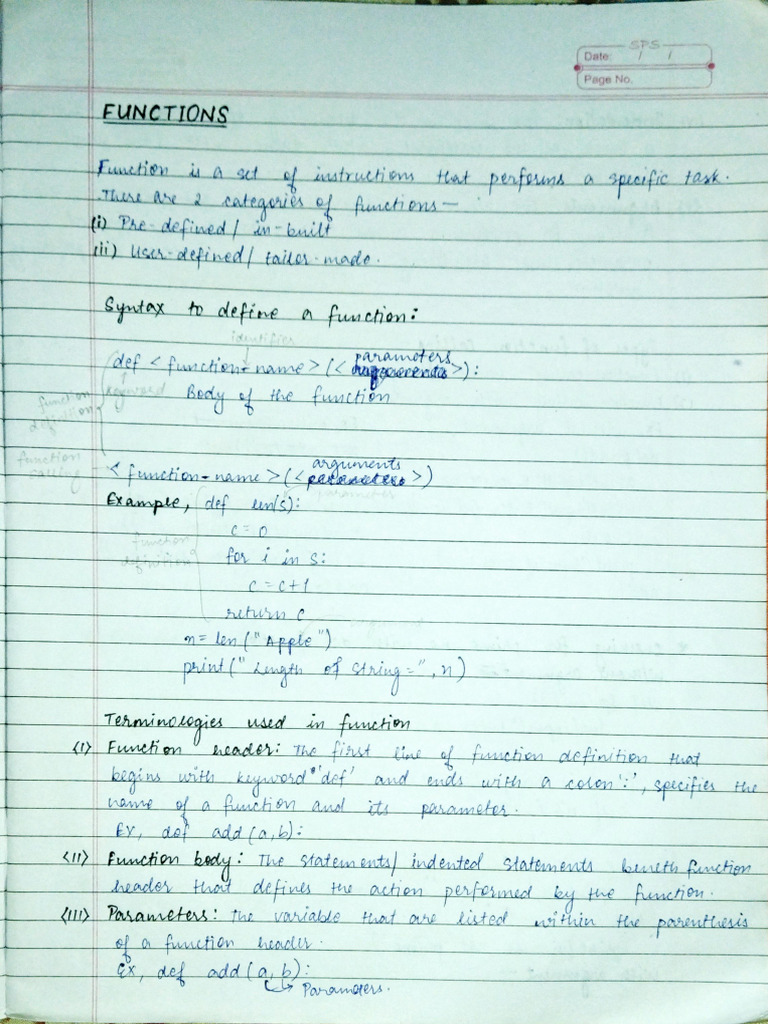 SPS
Date: / /
Page No.
FUNCTIONS
Function is a set of instructions that performs a specific task.
There are 2 categories of functions—
(i) Pre-defined/ in-built
(ii) User-defined/ tailor-made.
Syntax to define a function:
identifier
parameters
def <function-name>(< >):
keyword
Body of the function
function
definition
function
calling
arguments
<function-name>(<parameters>)
parameter
Example, def len(s):
c=0
function
definition
for i in s:
c=c+1
return c
n=len("Apple")
print("Length of string=",n)
Terminologies used in function
(I) Function header: The first line of function definition that
begins with keyword 'def' and ends with a colon ':', specifies the
name of a function and its parameter.
Ex, def add(a,b):
(II) Function body: The statements/ indented statements beneth function
header that defines the action performed by the function.
(III) Parameters: The variable that are listed within the parenthesis
of a function header.
Ex, def add(a,b):
Parameters.